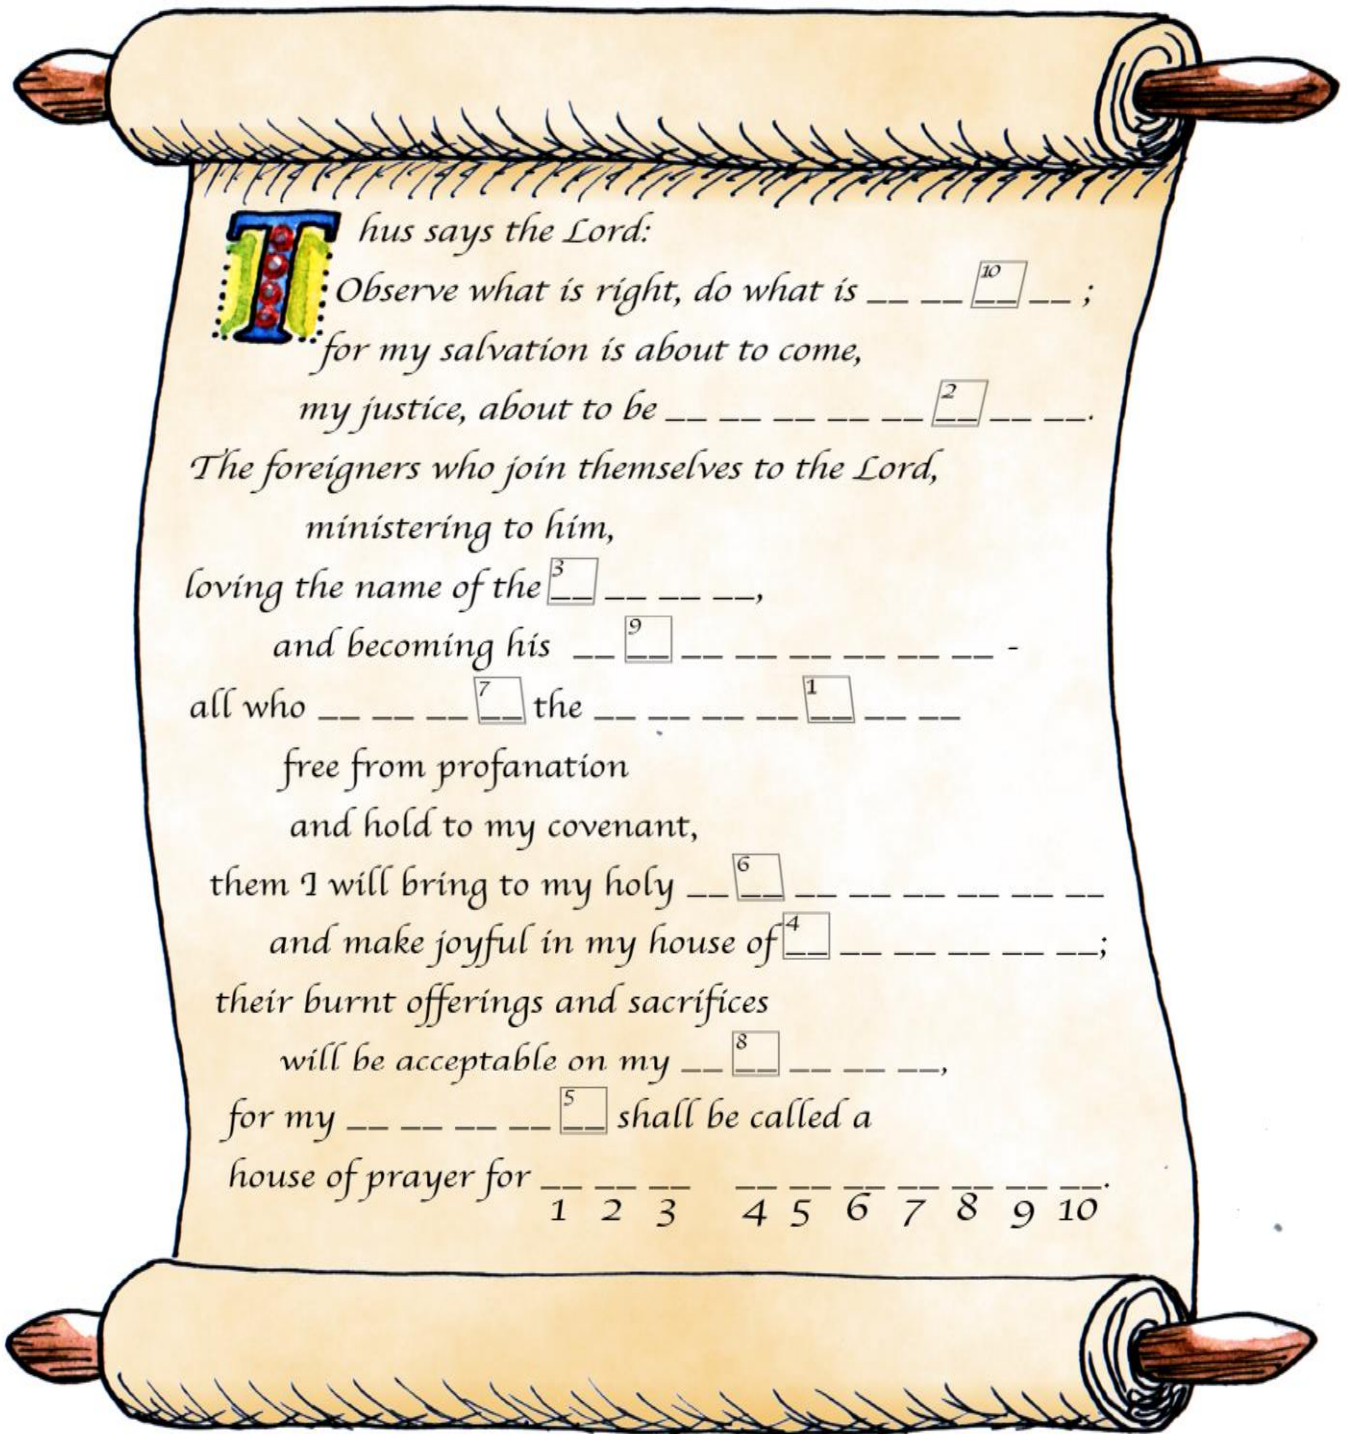 Thus says the Lord:
Observe what is right, do what is __ __ 10 __ __ ;
for my salvation is about to come,
my justice, about to be __ __ __ __ __ 2 __ __ __.
The foreigners who join themselves to the Lord,
ministering to him,
loving the name of the 3 __ __ __ __,
and becoming his __ 9 __ __ __ __ __ __ __ -
all who __ __ __ 7 __ the __ __ __ __ 1 __ __ __
free from profanation
and hold to my covenant,
them I will bring to my holy __ 6 __ __ __ __ __ __ __
and make joyful in my house of 4 __ __ __ __ __ __;
their burnt offerings and sacrifices
will be acceptable on my __ 8 __ __ __ __,
for my __ __ __ __ 5 __ shall be called a
house of prayer for __ __ __ __ __ __ __ __ __ __.
1 2 3 4 5 6 7 8 9 10